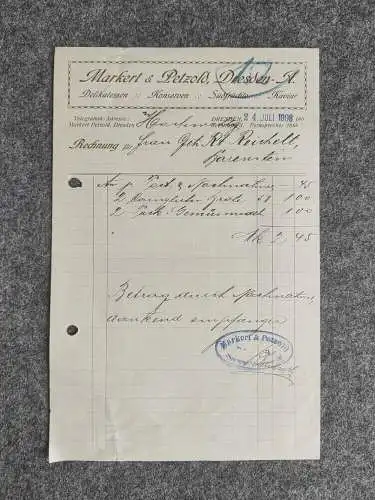 Markert & Petzold, Dresden-A.
Delikatessen :: Konserven :: Südfrüchte :: Kaviar
Telegramm-Adresse:
Markert Petzold, Dresden
DRESDEN, 24. JULI 1908
Rechnung für Frau Geh. Rt. Reichelt,
Bärenstein
An p. Post & Nachnahme — 45
2 Brote 1 00
2 Pack. 1 00
Mk 2,45
Betrag durch Nachnahme
dankend empfangen
Markert & Petzold